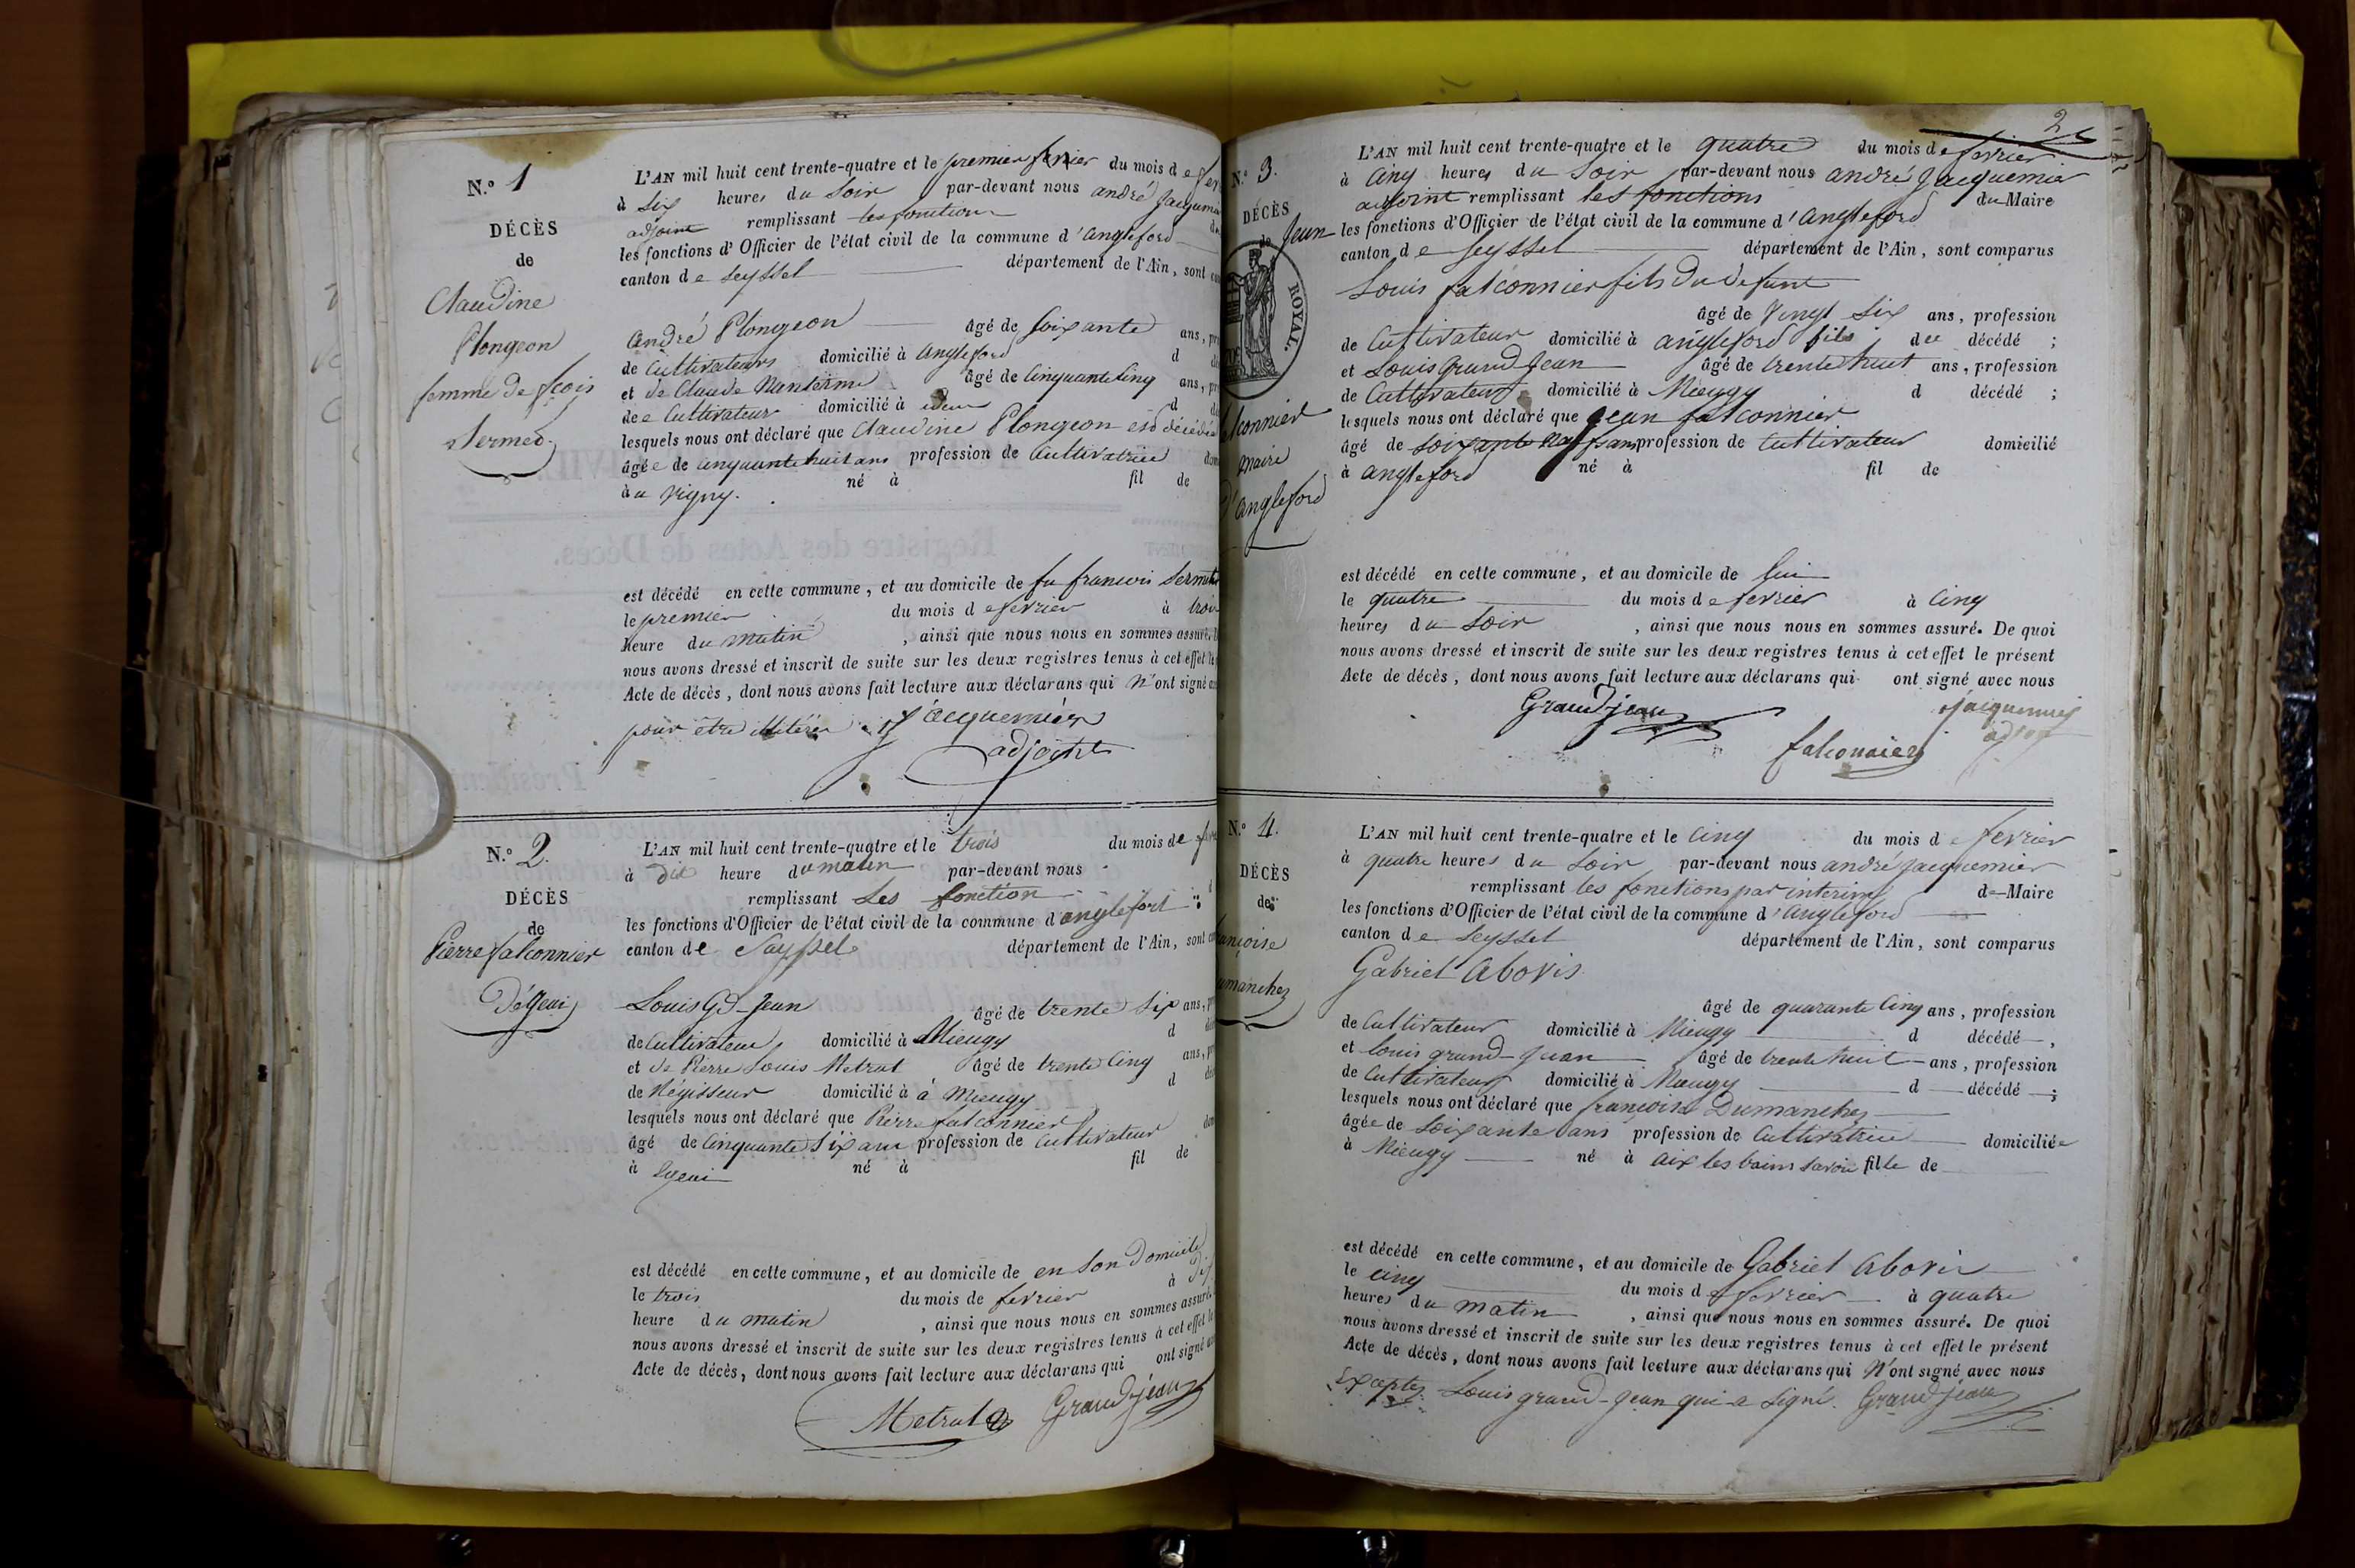 N.º 1
DÉCÈS
de
Claudine
Plongeon
femme de fcois
Sermet
L'AN mil huit cent trente-quatre et le premier fevrier du mois de
à Six heures du Soir par-devant nous andré
adjoint remplissant les fonctions
les fonctions d'Officier de l'état civil de la commune d'angleford
canton de Seyssel département de l'Ain, sont
andré Plongeon âgé de Soixante ans,
de Cultivateurs domicilié à angleford d
et de Claude Nanterme âgé de Cinquante Cinq ans,
dee Cultivateur domicilié à idem d
lesquels nous ont déclaré que Claudine Plongeon est décédée
âgée de Cinquante huit ans profession de Cultivatrice
à u vigny. né à fil de
est décédé en cette commune, et au domicile de fu francois
le premier du mois de fevrier à trois
heure du matin, ainsi que nous nous en sommes assuré.
nous avons dressé et inscrit de suite sur les deux registres tenus à cet effet le
Acte de décès, dont nous avons fait lecture aux déclarans qui N'ont signé
pour être illitérés Jacquemier
adjoint
N.º 2.
DÉCÈS
de
Pierre falconnier
L'AN mil huit cent trente-quatre et le trois du mois de
à dix heure du matin par-devant nous
remplissant Les fonction
les fonctions d'Officier de l'état civil de la commune d'anglefort
canton de Sayssel département de l'Ain, sont
Louis Gd-Jean âgé de trente Six ans,
de Cultivateur domicilié à Mieugy d
et de Pierre Louis Metrat âgé de trente Cinq ans,
de Régisseur domicilié à à Mieugy d
lesquels nous ont déclaré que Pierre falconnier
âgé de Cinquante Six ans profession de Cultivateur
à né à fil de
est décédé en cette commune, et au domicile de en Son Domicile
le trois du mois de fevrier à
heure du matin, ainsi que nous nous en sommes assuré.
nous avons dressé et inscrit de suite sur les deux registres tenus à cet effet le
Acte de décès, dont nous avons fait lecture aux déclarans qui ont signé
Metrat Grandjean
2
N.º 3.
DÉCÈS
de Jean
ROYAL.
maire
d'angleford
L'AN mil huit cent trente-quatre et le quatre du mois de fevrier
à Cinq heures du Soir par-devant nous andré Jacquemier
adjoint remplissant les fonctions du Maire
les fonctions d'Officier de l'état civil de la commune d'angleford
canton de Seyssel département de l'Ain, sont comparus
Louis falconnier fils du defunt
âgé de Vingt Six ans, profession
de Cultivateur domicilié à angleford fils du décédé;
et Louis Grand Jean âgé de trente huit ans, profession
de Cultivateur domicilié à Mieugy d décédé;
lesquels nous ont déclaré que jean falconnier
âgé de ans profession de Cultivateur domicilié
à angleford né à fil de
est décédé en cette commune, et au domicile de lui
le quatre du mois de fevrier à Cinq
heures du Soir, ainsi que nous nous en sommes assuré. De quoi
nous avons dressé et inscrit de suite sur les deux registres tenus à cet effet le présent
Acte de décès, dont nous avons fait lecture aux déclarans qui ont signé avec nous
Grandjean Jacquemier
falconnier
N.º 4.
DÉCÈS
de
L'AN mil huit cent trente-quatre et le Cinq du mois de fevrier
à quatre heures du Soir par-devant nous andré Jacquemier
remplissant les fonctions par interim de Maire
les fonctions d'Officier de l'état civil de la commune d'angleford
canton de Seyssel département de l'Ain, sont comparus
Gabriel Abovis
âgé de quarante Cinq ans, profession
de Cultivateur domicilié à Mieugy d décédé,
et Louis grand-Jean âgé de trente huit ans, profession
de Cultivateur domicilié à Mieugy d décédé;
lesquels nous ont déclaré que françoise Dumanchez
âgée de Soixante ans profession de Cultivatrice domiciliée
à Mieugy né à aix les bains Savoie fille de
est décédé en cette commune, et au domicile de Gabriel Abovis
le Cinq du mois de fevrier à quatre
heures du matin, ainsi que nous nous en sommes assuré. De quoi
nous avons dressé et inscrit de suite sur les deux registres tenus à cet effet le présent
Acte de décès, dont nous avons fait lecture aux déclarans qui N'ont signé avec nous
Exceptez Louis grand-Jean qui a Signé. Grandjean